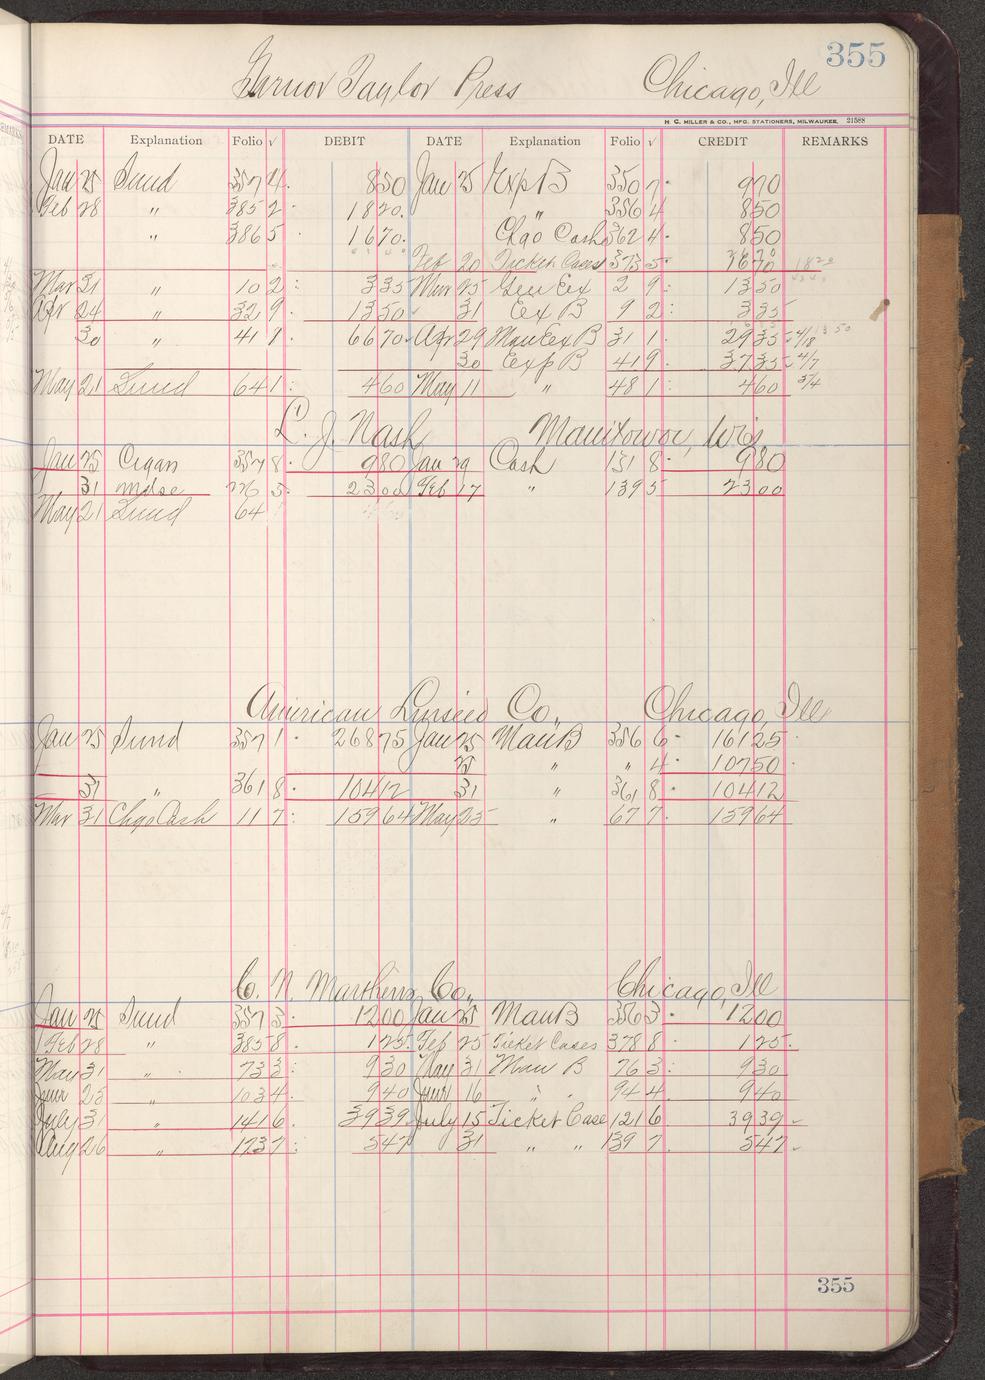 355
Garnor Taylor Press Chicago, Ill
H. C. MILLER & CO., MFG. STATIONERS, MILWAUKEE. 21588
DATE Explanation Folio √ DEBIT DATE Explanation Folio √ CREDIT REMARKS
Jan 25 Sund 357 4 850 Jan 25 Exp B 350 7 970
Feb 28 " 385 2 1820 " 356 4 850
" 386 5 1670 Chgo Cash 362 4 850
Feb 20 Ticket Cases 373 5 1820
Mar 31 " 10 2 335 Mar 25 Gen Ex 2 9 1350
Apr 24 " 32 9 1350 31 Ex B 9 2 335
30 " 41 7 6670 Apr 29 Man Ex B 31 1 2935 4/18
30 Exp B 41 9 3735 4/7
May 21 Sund 64 1 460 May 11 " 48 1 460 5/4
L. J. Nash Manitowoc, Wis
Jan 25 Cigars 357 8 980 Jan 29 Cash 131 8 980
31 Mdse 226 5 2300 Feb 17 " 139 5 2300
May 21 Sund 64
American Linseed Co., Chicago, Ill
Jan 25 Sund 357 1 26875 Jan 25 Man B 356 6 16125
25 " " 4 10750
31 " 361 8 10412 31 " 361 8 10412
Mar 31 Chgo Cash 11 7 15964 May 25 " 67 7 15964
C. N. Marthens Co., Chicago, Ill
Jan 25 Sund 357 3 1200 Jan 25 Man B 356 3 1200
Feb 28 " 385 8 125 Feb 25 Ticket Cases 378 8 125
May 31 " 73 3 930 May 31 Man B 76 3 930
June 25 " 103 4 940 June 16 " " 94 4 940
July 31 " 141 6 3939 July 15 Ticket Case 121 6 3939
Aug 26 " 173 7 547 31 " " 139 7 547
355